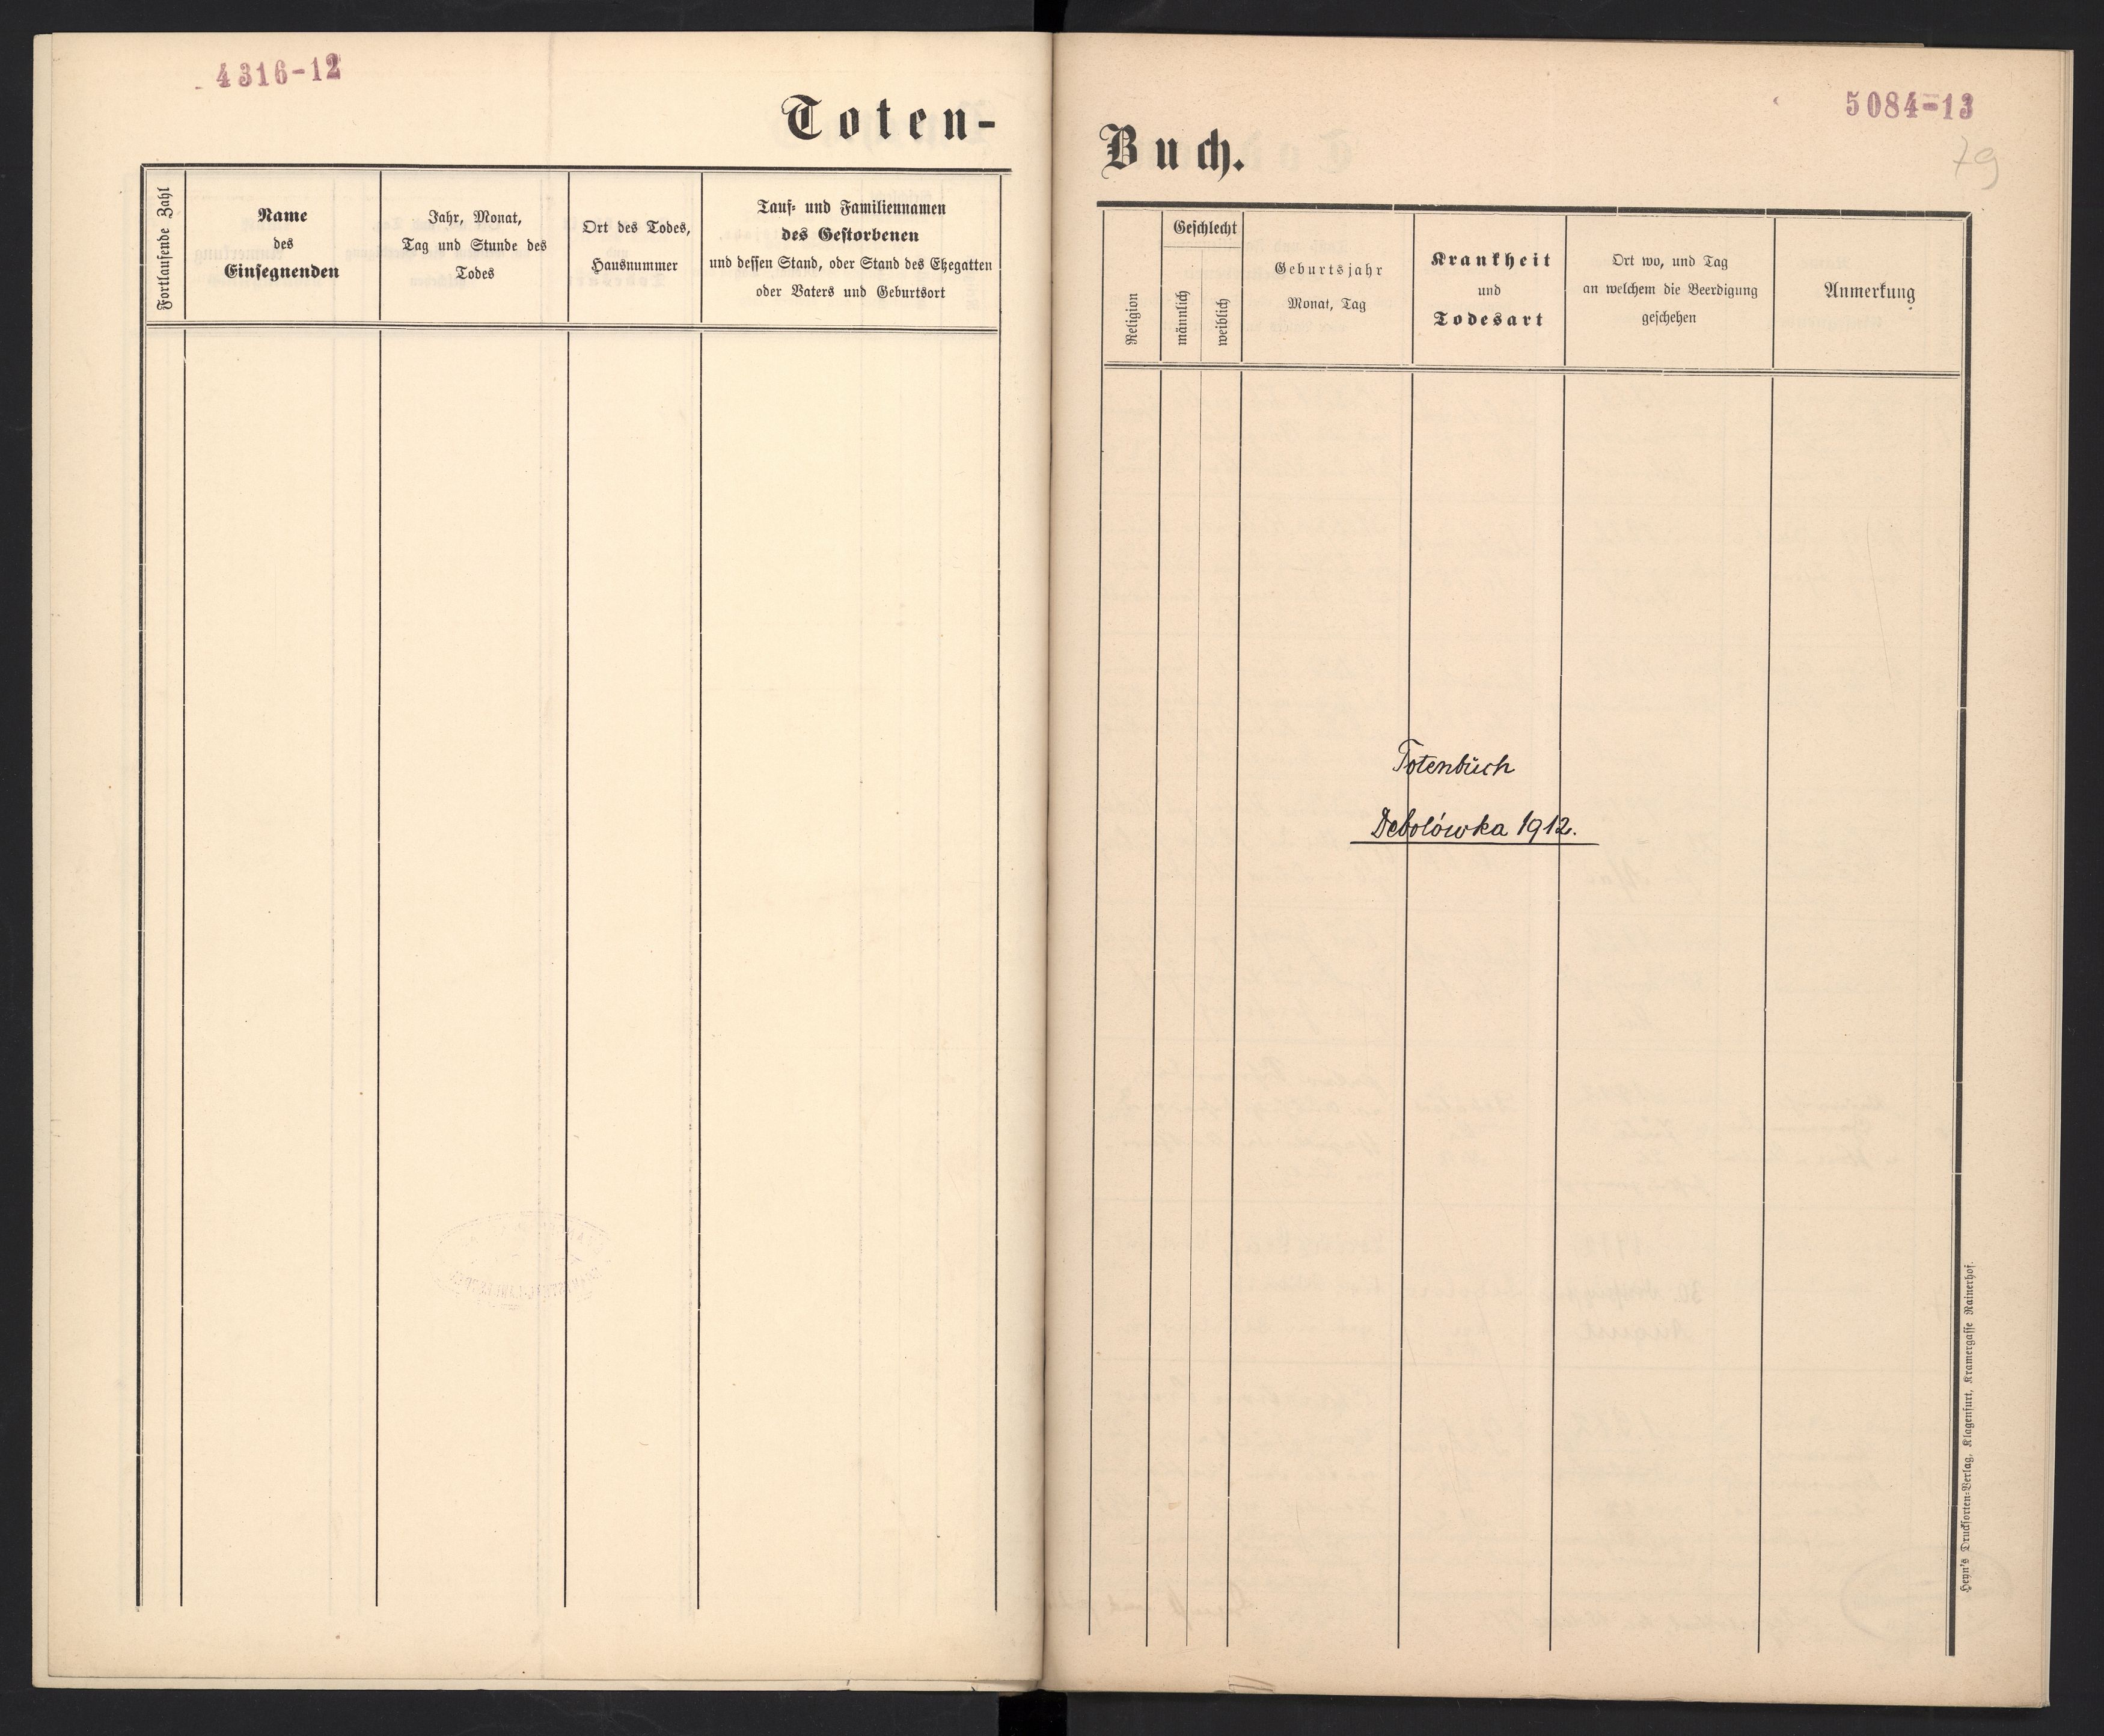 4316-12
Toten-
Fortlaufende Zahl
Name
des
Einsegnenden
Jahr, Monat,
Tag und Stunde des
Todes
Ort des Todes,
Hausnummer
Tauf- und Familiennamen
des Gestorbenen
und dessen Stand, oder Stand des Ehegatten
oder Vaters und Geburtsort
5084-13
79
Buch.
Religion
Geschlecht
männlich
weiblich
Geburtsjahr
Monat, Tag
Krankheit
und
Todesart
Ort wo, und Tag
an welchem die Beerdigung
geschehen
Anmerkung
Totenbuch
Debolówka 1912.
Heyn's Drucksorten-Verlag, Klagenfurt, Kramergasse Rainerhof.